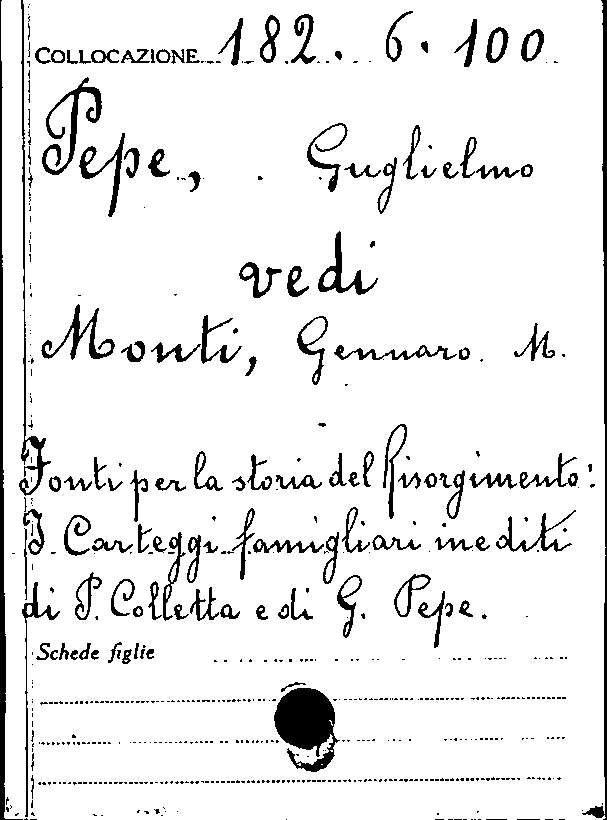 COLLOCAZIONE 182. 6. 100
Pepe, Guglielmo
vedi
Monti, Gennaro M.
Fonti per la storia del Risorgimento:
I Carteggi famigliari inediti
di P. Colletta e di G. Pepe.
Schede figlie